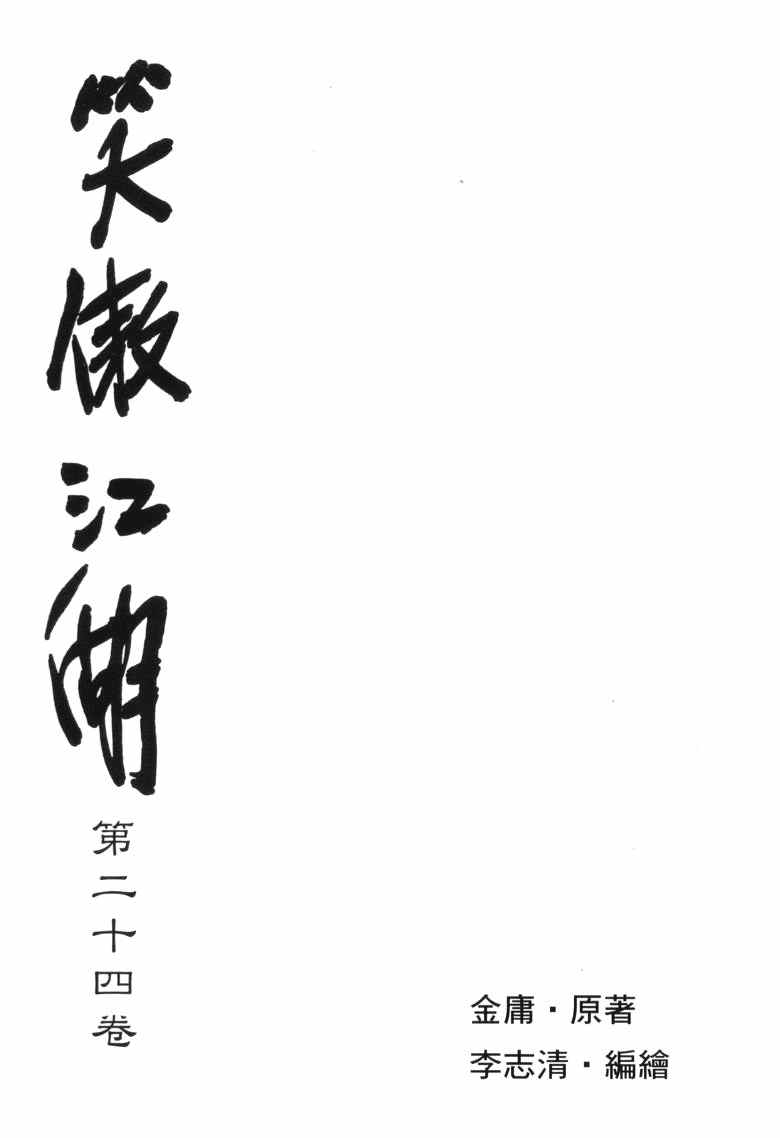 笑傲江湖
第二十四卷
金庸·原著
李志清·編繪